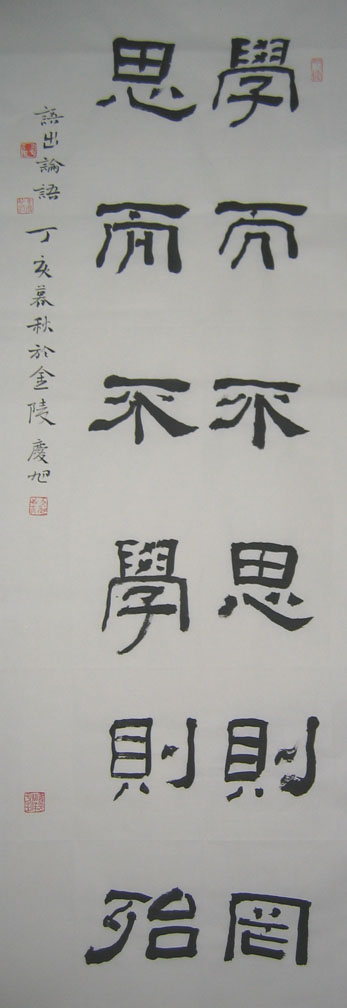 學而不思則罔
思而不學則殆
語出論語 丁亥暮秋於金陵 慶旭